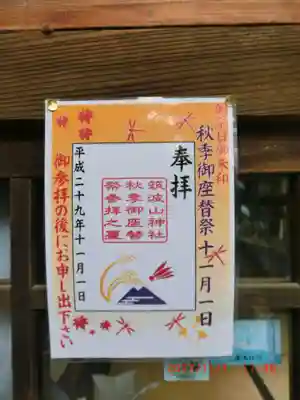 秋季御座替祭 十一月一日
奉拝
筑波山神社
秋季御座替
祭参拝之璽
平成二十九年十一月一日
御参拝の後にお申し出下さい